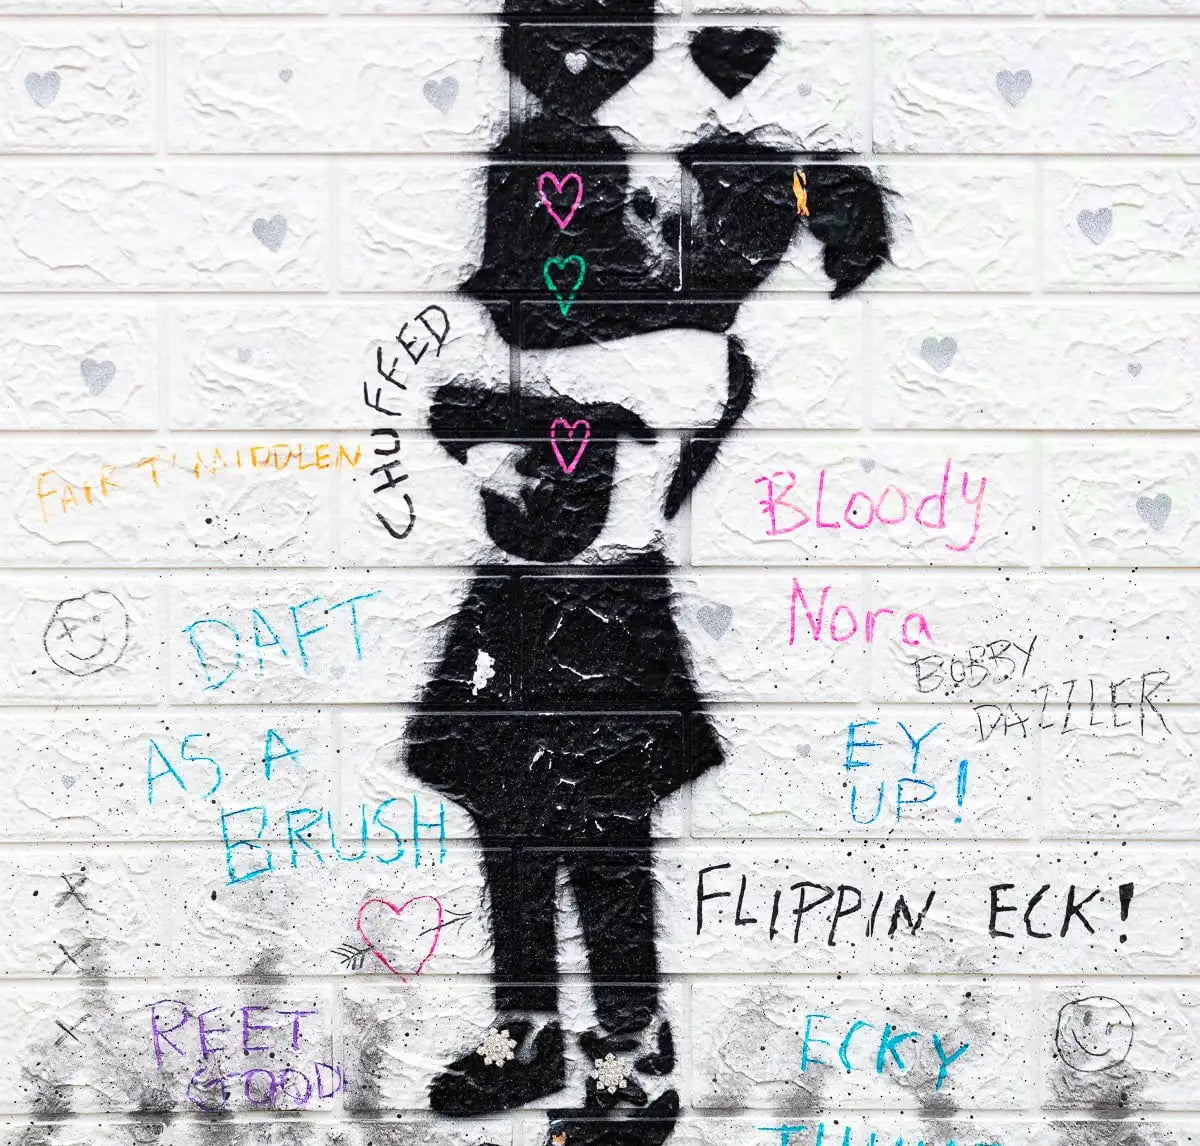 CHUFFED
FAIR T' MIDDLEN
BLoody
Nora
DAFT
AS A
BRUSH
BOBBY
DAZZLER
EY
UP!
FLIPPIN ECK!
REET
GOOD
ECKY
THUMP